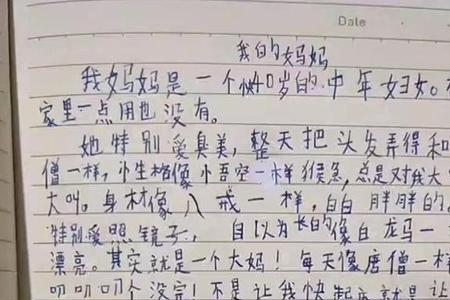 Date
我的妈妈
我妈妈是一个快40岁的中年妇女。
家里一点用也没有。
她特别爱臭美,整天把头发弄得和
僧一样,小生格像小悟空一样猴急,总是对我大
大叫。身材像八戒一样,白白胖胖的。
特别爱照镜子,自以为长的像白龙马一
漂亮。其实就是一个大妈!每天像唐僧一样
叨叨叨个没完!不是让我快起床就是让